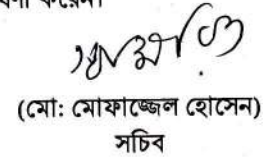 (মো: মোফাজ্জেল হোসেন)
সচিব